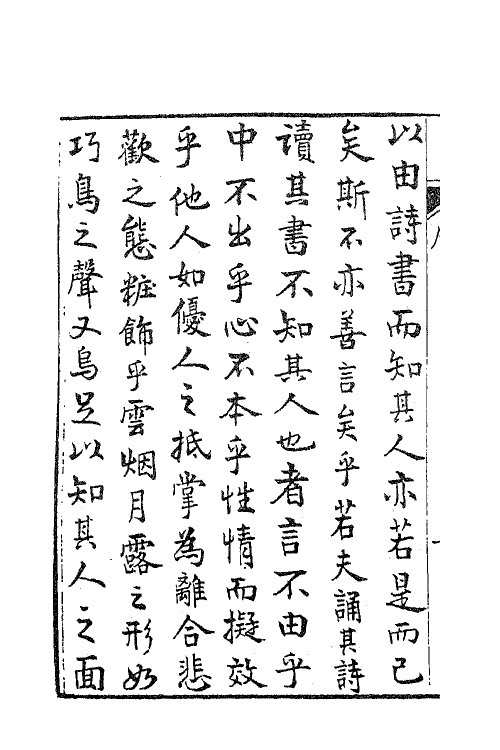 以由詩書而知其人亦若是而已
矣斯不亦善言矣乎若夫誦其詩
讀其書不知其人也者言不由乎
中不出乎心不本乎性情而擬效
乎他人如優人之抵掌為離合悲
歡之態粧飾乎雲烟月露之形如
巧鳥之聲又烏足以知其人之面